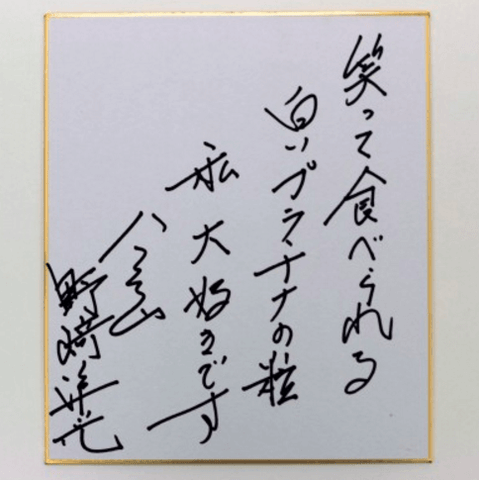 笑って食べられる
白いプラチナの粒
私 大好きです
分とく山
野﨑洋光